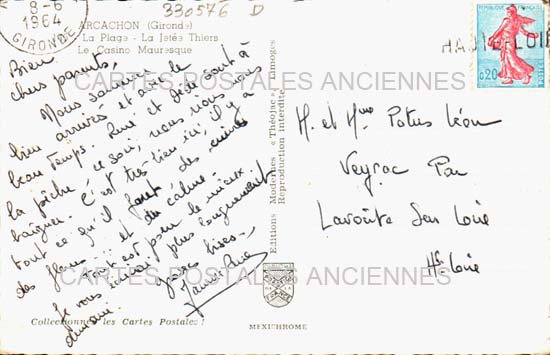 8-6
1964
GIRONDE
330576 D
ARCACHON (Gironde)
La Plage - La Jetée Thiers
Le Casino Mauresque
HAUTE-LOIRE
0,20
CARTES POSTALES ANCIENNES
Bien
chers parents,
Nous sommes
bien arrivés et avec le
beau temps. René et Jésus sont à
la pêche ce soir, nous nous
baigner. C'est très bien ici, il y a
tout ce qu'il faut des
des fleurs ... et du calme.
Tout est pour le mieux.
Je vous écrirai plus longuement
demain. grosses bises,
M. et Mme Potus Léon
Veyrac Par
Lavoûte Sur Loire
Hte Loire
Editions Modernes « Théojac », Limoges
Reproduction interdite
CARTES POSTALES ANCIENNES
Collectionnez les Cartes Postales !
MEXICHROME